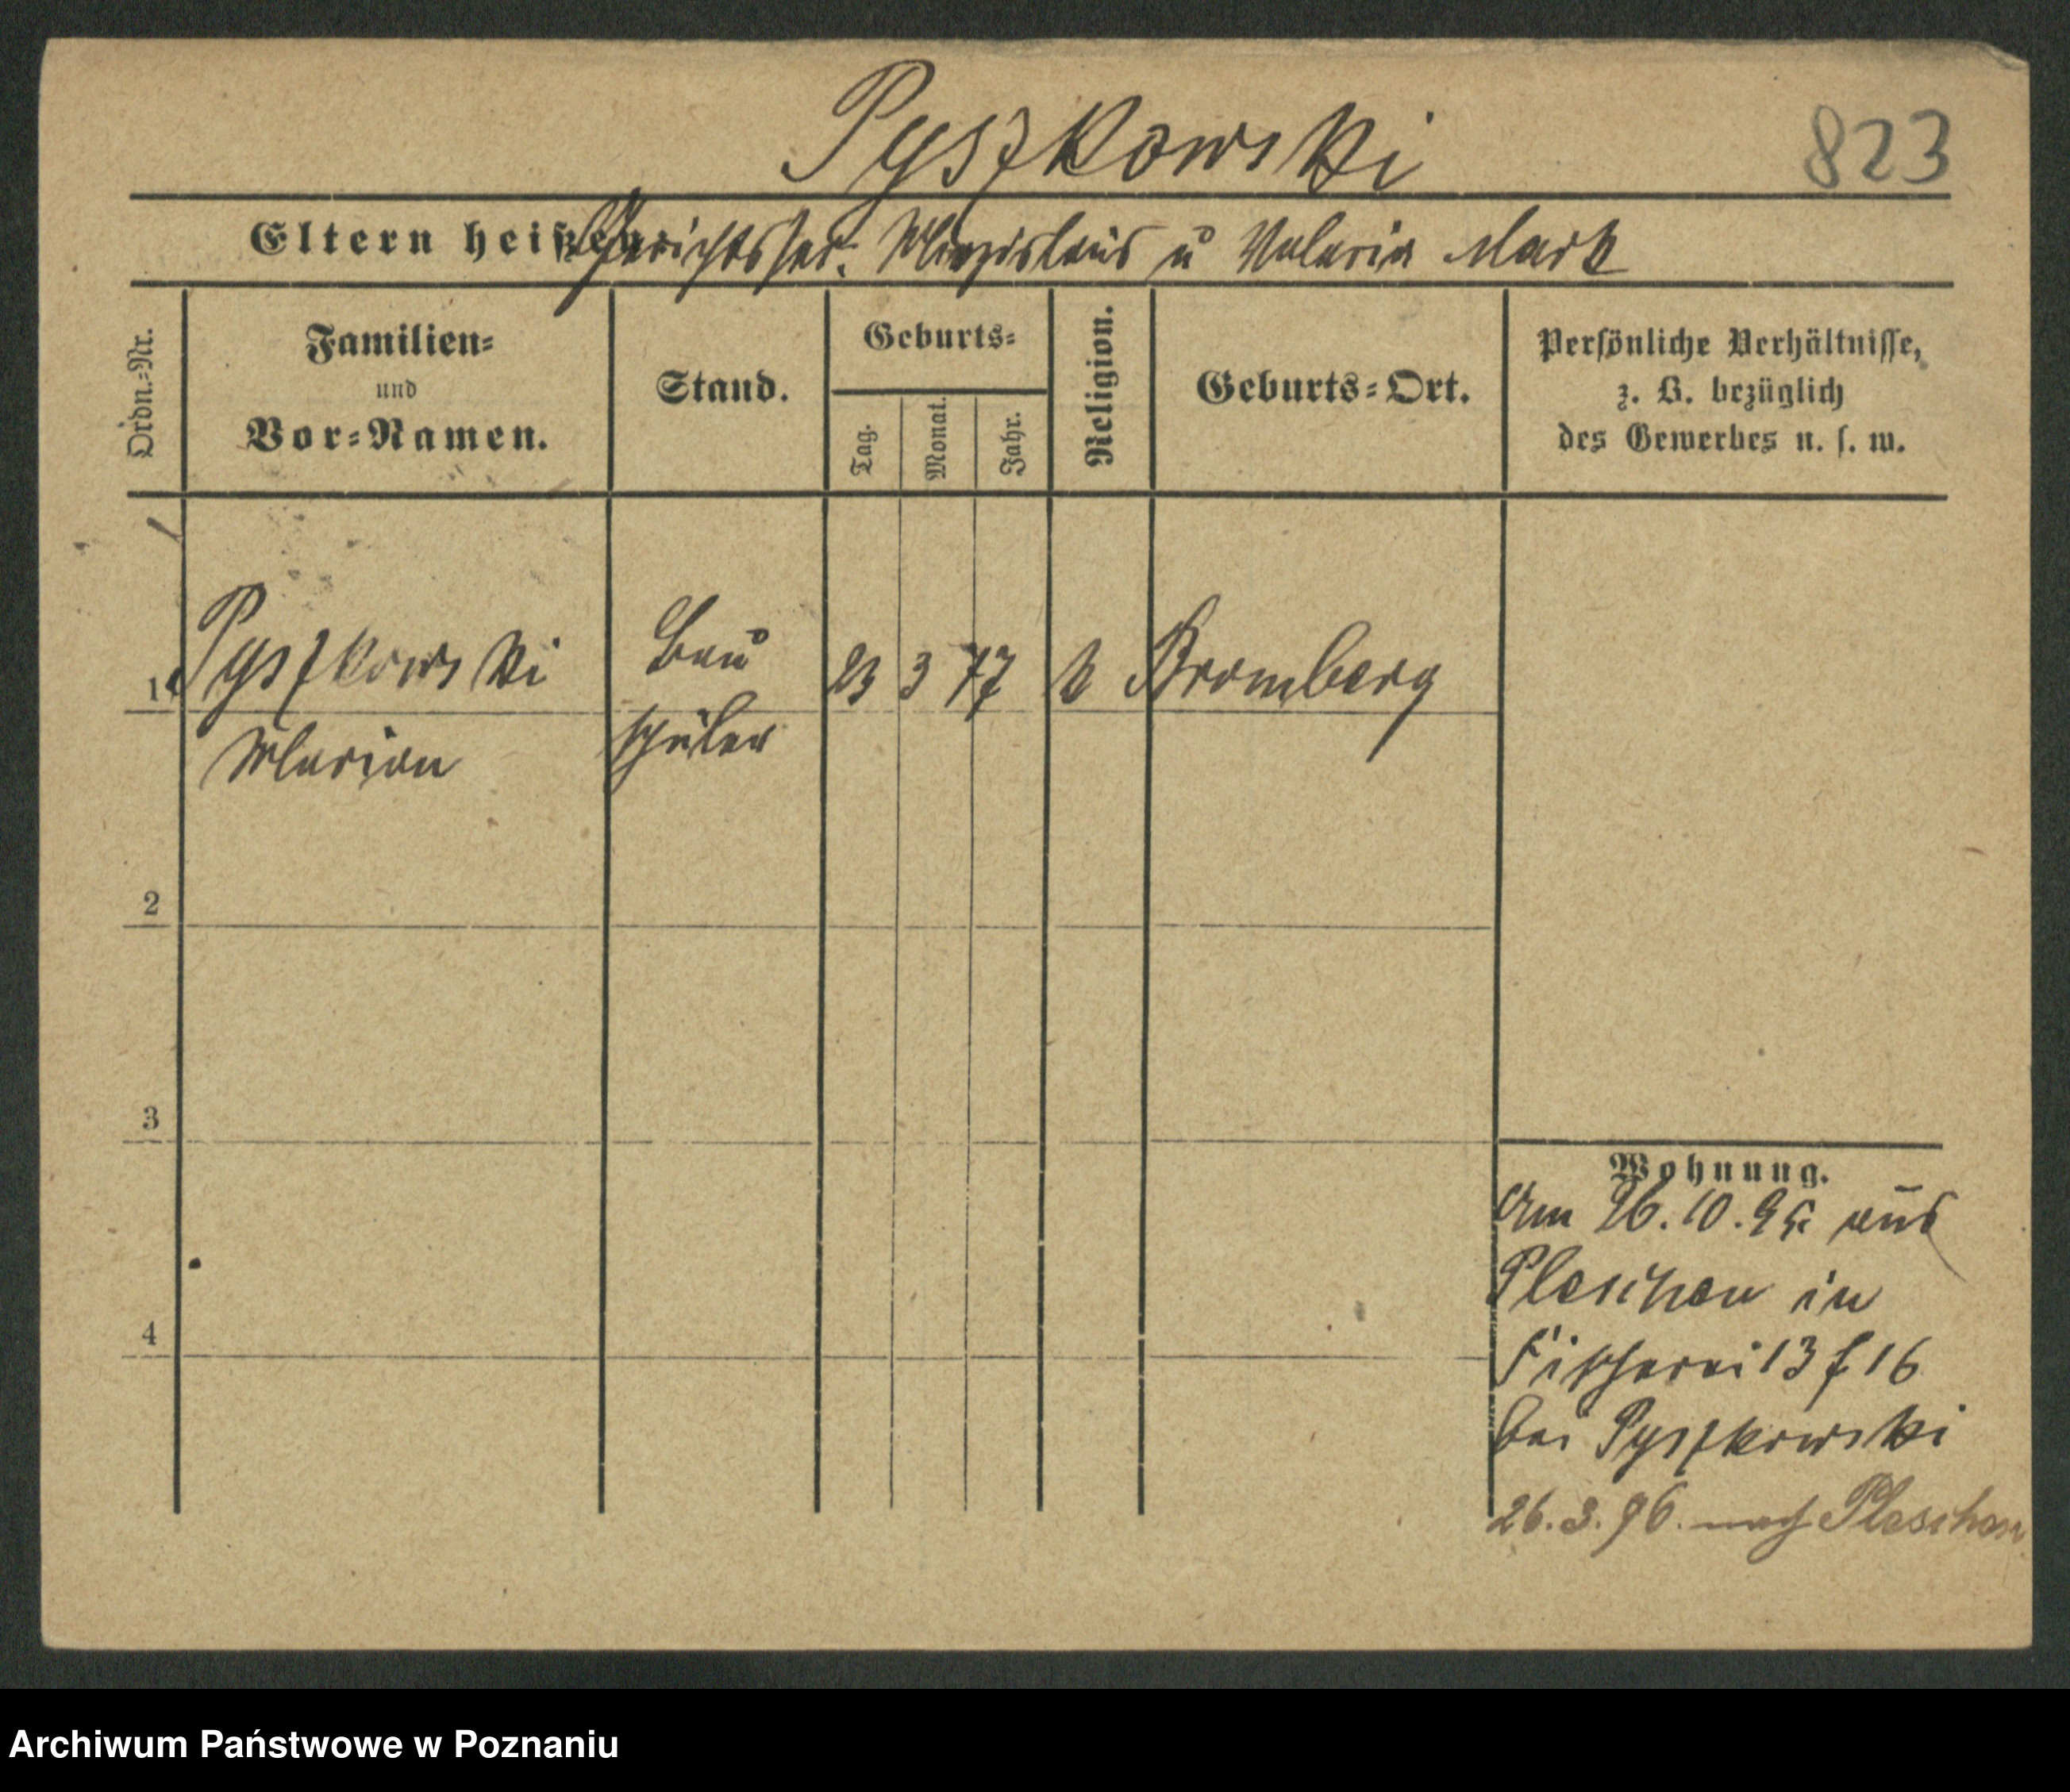 Pyszkowski
823
Eltern heißen: Gerichtsskr. Miecislaus u Valeria Mark
Ordn.=Nr.
Familien=
und
Vor=Namen.
Stand.
Geburts=
Tag.
Monat.
Jahr.
Religion.
Geburts=Ort.
Persönliche Verhältnisse,
z. B. bezüglich
des Gewerbes u. s. w.
1 Pyszkowski Bau 23 3 77 k Bromberg
Marian schüler
2
3
4
Wohnung.
Am 26.10.95 aus
Pleschen in
Fischerei 13 f 16
bei Pyszkowski
26.3.96. nach Pleschen
Archiwum Państwowe w Poznaniu